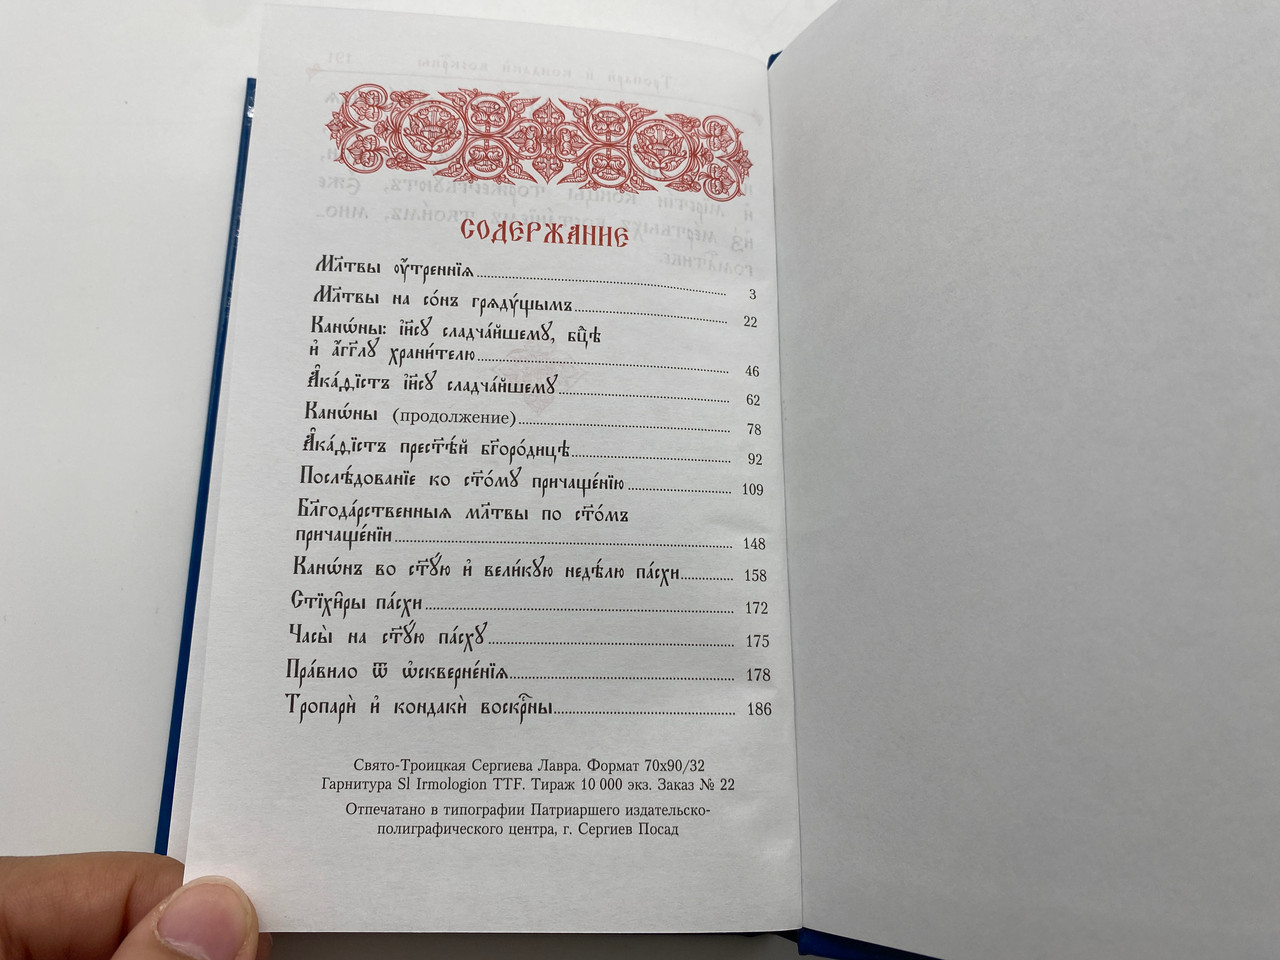 СОДЕРЖАНИЕ
Мл҃твы ᲂу҆́треннїѧ 3
Мл҃твы на со́нъ грѧдꙋ́щымъ 22
Канѡ́ны: і҆и҃сꙋ сладча́йшемꙋ, бц҃ѣ
и҆ а҆́гг҃лꙋ храни́телю 46
А҆ка́ѳїстъ і҆и҃сꙋ сладча́йшемꙋ 62
Канѡ́ны (продолжение) 78
А҆ка́ѳїстъ прест҃ѣ́й бг҃оро́дицѣ 92
Послѣ́дованїе ко ст҃о́мꙋ причаще́нїю 109
Бл҃года́рственныѧ мл҃твы по ст҃о́мъ
причаще́нїи 148
Канѡ́нъ во ст҃ꙋ́ю и҆ вели́кꙋю недѣ́лю па́схи 158
Стїхи̑ры па́схи 172
Часы̀ на ст҃ꙋ́ю па́схꙋ 175
Пра́вило ѿ ѡ҆скверне́нїѧ 178
Тропарѝ и҆ кондакѝ воскрⷭ҇ны 186
Свято-Троицкая Сергиева Лавра. Формат 70х90/32
Гарнитура Sl Irmologion TTF. Тираж 10 000 экз. Заказ № 22
Отпечатано в типографии Патриаршего издательско-
полиграфического центра, г. Сергиев Посад